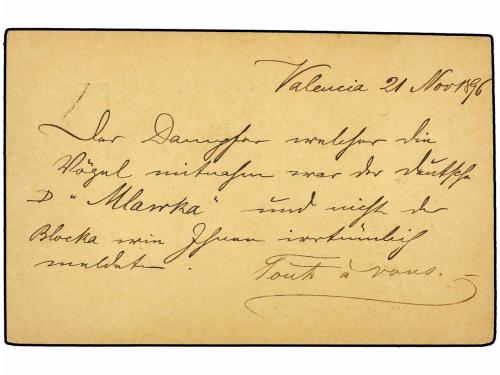 Valencia 21 Nov 1896
Der Dampfer welcher die
Vögel mitnahm war der deutsche
D "Mlawka" und nicht der
Blocka wie Ihnen irrtümlich
meldete.
Tout à vous.